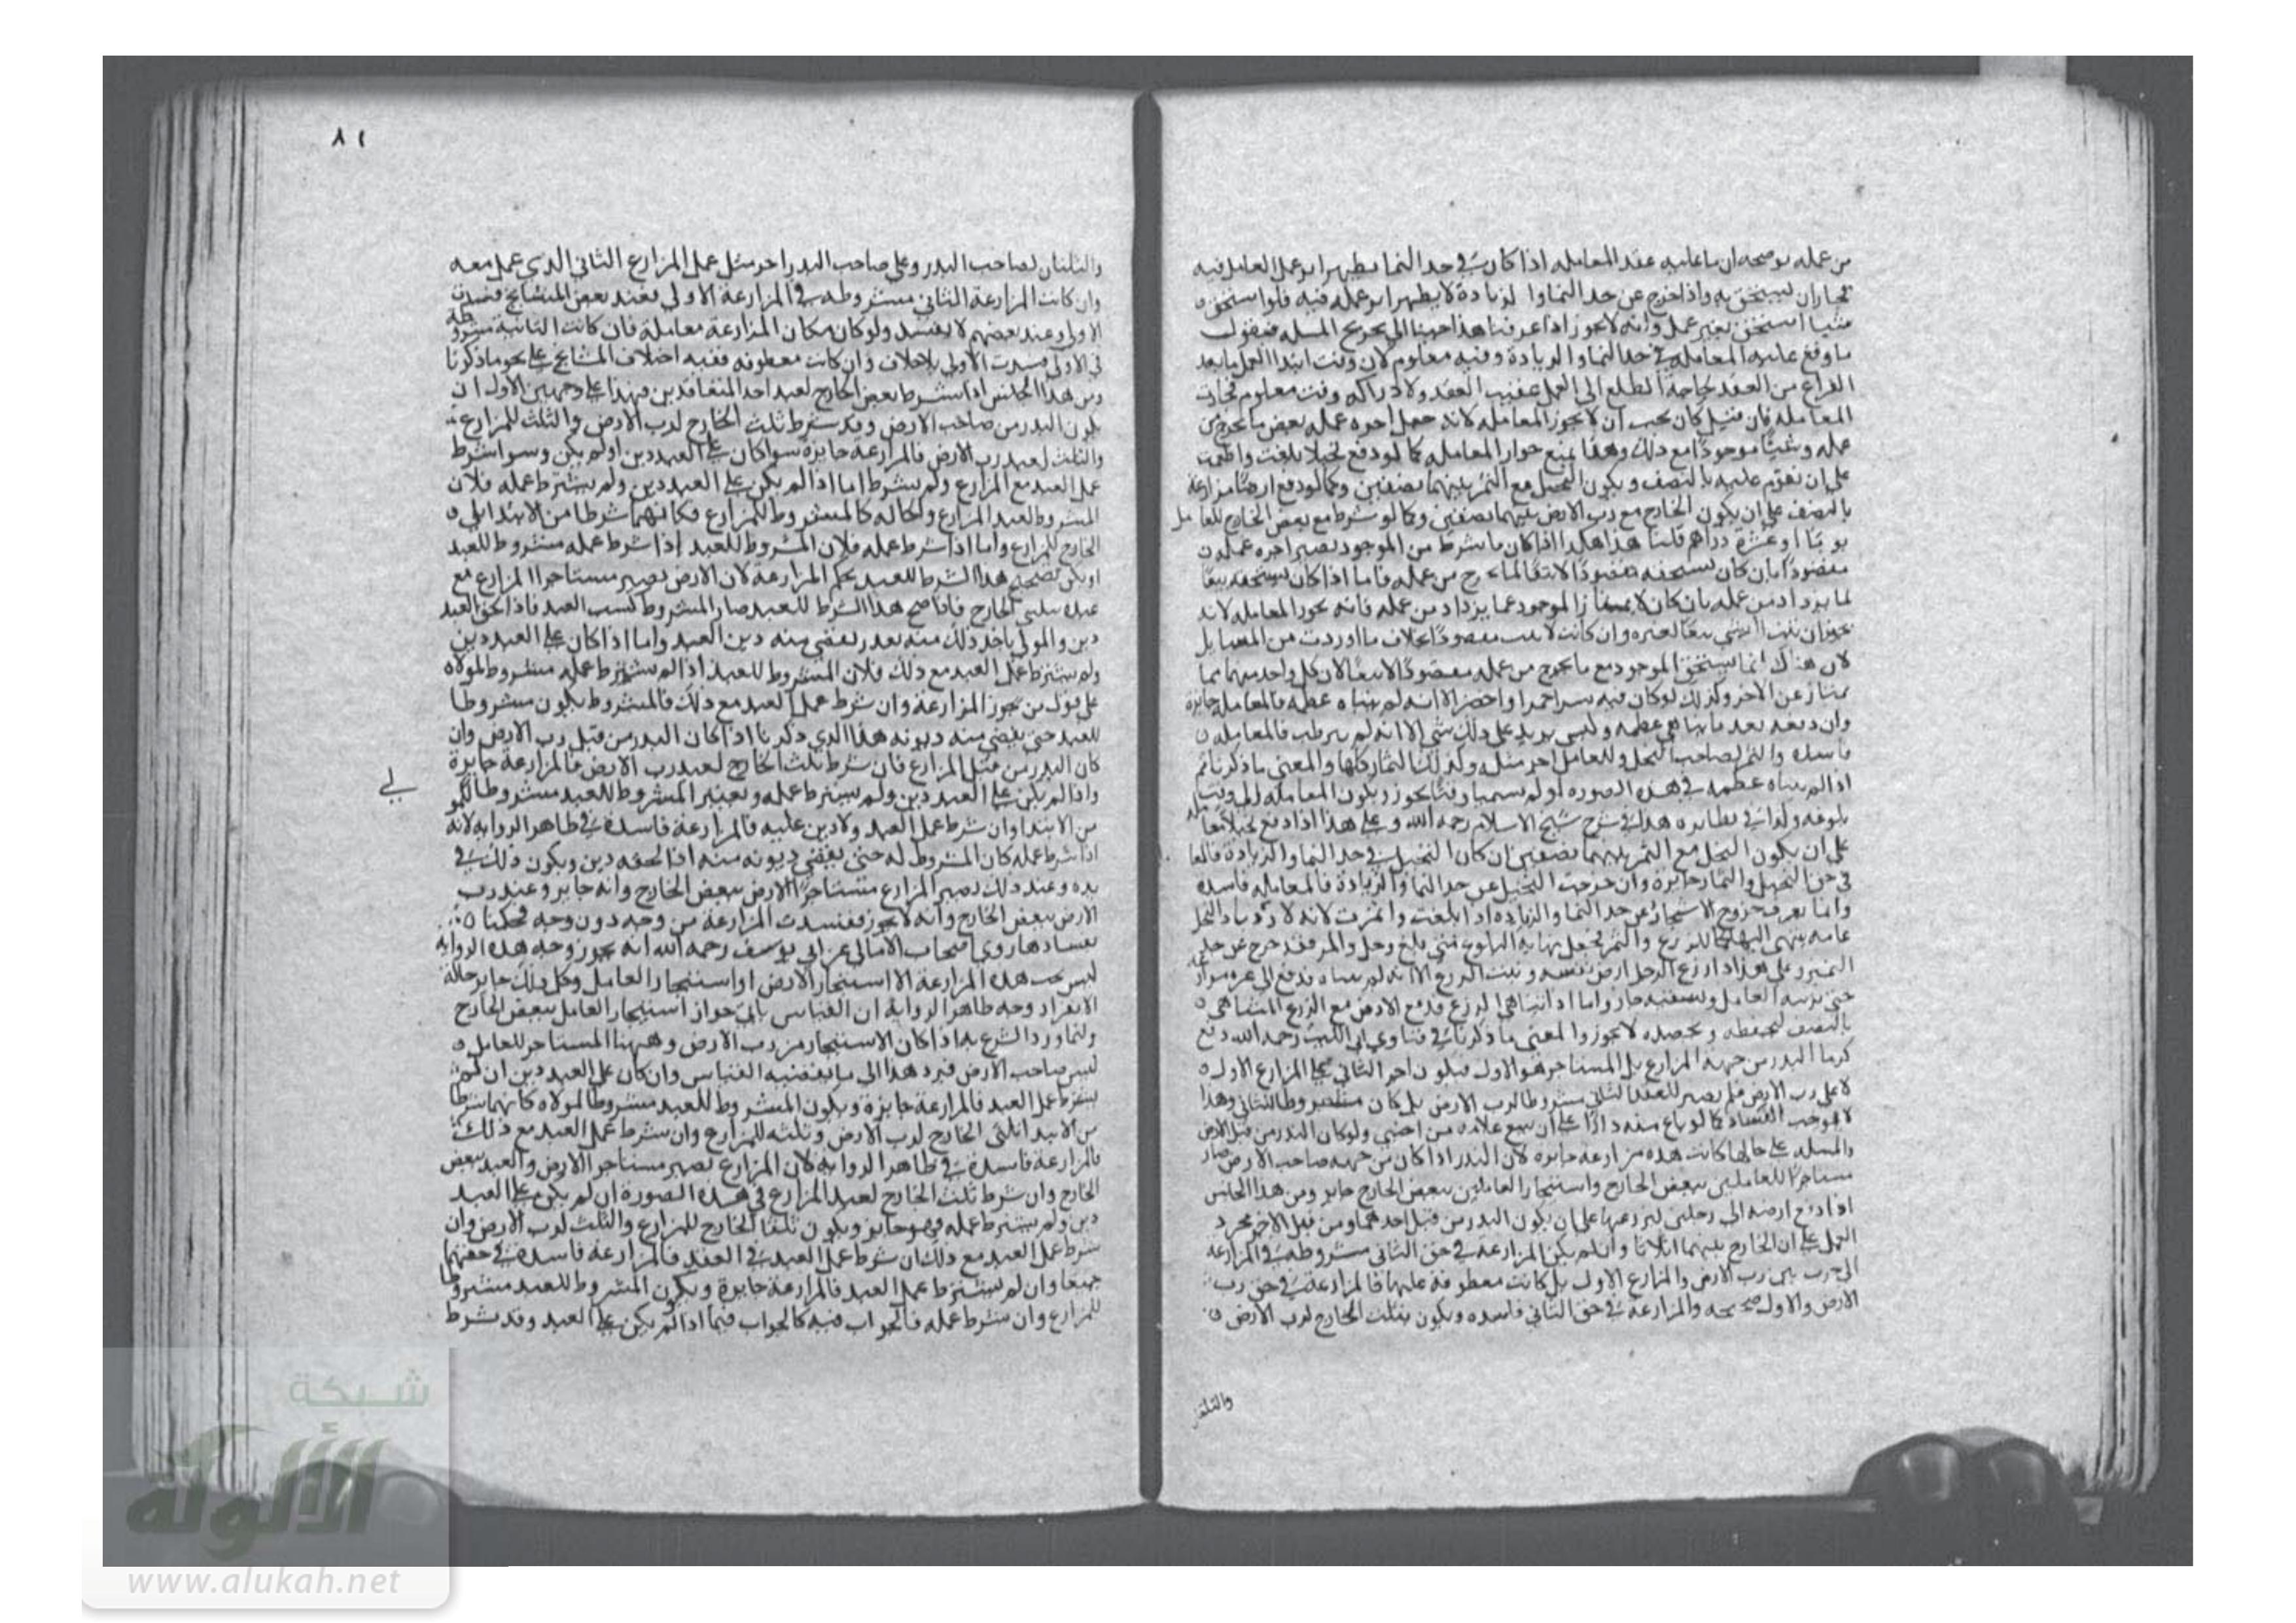 من عمله يوضحه ان ما عليه عقد المعامله اذا كان في حد النما يظهر اثر عمل العامل فيه
فجاز ان يستحق به واذا خرج عن حد النما والزيادة لا يظهر اثر عمله فيه فلو استحق
شيا استحق بغير عمل وانه لا يجوز اذا عرفنا هذا جينا الى تخريج المسله فنقول
ما وقع عليه المعاملة في حد النما والزيادة وفيه معلوم لان وقت ابتدا العمل ما بعد
الفراغ من العقد الطلع الى العمل عقيب العقد ولادراكه وقت معلوم فجازت
المعامله فان قيل كان يجب ان لا يجوز المعامله لانه جعل اجرة عمله بعض ما يخرج من
عمله وشيئا موجودا مع ذلك وهذا يمنع جواز المعامله كما لو دفع نخيلا بلغت واطلعت
على ان يقوم عليه بالنصف ويكون النخيل مع الثمر بينهما نصفين وكما لو دفع ارضا مزارعة
بالنصف على ان يكون الخارج مع رب الارض بينهما نصفين وكما لو شرط مع بعض الخارج للعامل
ثوبا او عشرة دراهم قلنا هذا هكذا اذا كان ما شرط من الموجود يصير اجرة عمله
مقصودا بان كان يستحقه مقصودا لا تبعا لما يخرج من عمله فاما اذا كان يستحقه تبعا
لما يزداد من عمله بان كان لا يمتاز الموجود عما يزداد من عمله فانه يجوز المعامله لانه
يجوز ان يثبت الشي تبعا لغيره وان كانت لا يثبت مقصودا بخلاف ما اوردت من المسايل
لان هناك انما يستحق الموجود مع ما يخرج من عمله مقصودا لا تبعا لان كل واحد منهما مما
يمتاز عن الاخر وكذلك لو كان فيه بسر احمر او اخضر الا انه لم يتناه عظمه فالمعامله جايزة
وان دفعه بعد ما تناهى عظمه وليس يزيد على ذلك شي الا انه لم يرطب فالمعامله
فاسده والثمر لصاحب النخل وللعامل اجر مثله وكذلك الثمار كلها والمعنى ما ذكرنا ثم
اذا لم يتناه عظمه في هذه الصورة لو لم يسميا وقتا يجوز ويكون المعامله الى وقت
بلوغه ولهذا في نظايره هذا في شرح شيخ الاسلام رحمه الله وعلى هذا اذا دفع نخيلا معاملة
على ان يكون النخل مع الثمر بينهما نصفين ان كان النخيل في حد النما والزيادة فالمعاملة
في حق النخيل والثمار جايزة وان خرجت النخيل عن حد النما والزيادة فالمعامله فاسده
وانما يعرف خروج الاشجار عن حد النما والزيادة اذا بلغت واثمرت
الثمر وعلى هذا اذا زرع الرجل ارض نفسه ونبت الزرع الا انه لم يتناه فدفع الى غيره مزارعة
حتى يربيه العامل ويسقيه جاز واما اذا تناهى الزرع فدفع الارض مع الزرع المتناهى
بالنصف ليحفظه ويحصده لا يجوز والمعنى ما ذكرنا في فتاوى ابي الليث رحمه الله دفع
كرما البدر من جهة المزارع بل المستاجر هو الاول فيكون اجر الثاني على المزارع الاول
لا على رب الارض فلم يصير العقد الثاني مشروطا لرب الارض بل كان وهذا
لا يوجب الفساد كما لو باع منه دارا على ان يبيع غلامه من اجنبي ولو كان البدر من قبل رب الارض
والمسله على حالها كانت هذه مزارعة جايزة لان البدر اذا كان من جهة صاحب الارض صار
مستاجرا للعاملين ببعض الخارج واستيجار العاملين ببعض الخارج جايز ومن هذا الجنس
اذا دفع ارضه الى رجلين ليزرعها على ان يكون البدر من قبل احدهما ومن قبل الاخر مجرد
العمل على ان الخارج بينهما اثلاثا وان لم يكن المزارعة في حق الثاني مشروطة في المزارعة
التي جرت بين رب الارض والمزارع الاول بل كانت معطوفة عليها فالمزارعة في حق رب
الارض والاول صحيحه والمزارعة في حق الثاني فاسده ويكون ثلث الخارج لرب الارض
والثلثان
٨١
والثلثان لصاحب البدر وعلى صاحب البدر اجر مثل عمل المزارع الثاني الذي عمل معه
وان كانت المزارعة الثاني مشروطه في المزارعة الاولى فعند بعض المشايخ فسدت
الاولى وعند بعضهم لا يفسد ولو كان مكان المزارعة معاملة فان كانت الثانية مشروطة
في الاولى فسدت الاولى بلا خلاف وان كانت معطوفه ففيه اختلاف المشايخ على نحو ما ذكرنا
ومن هذا الجنس اذا شرط بعض الخارج لعبد احد المتعاقدين فهذا على وجهين الاول ان
يكون البدر من صاحب الارض وقد شرط ثلث الخارج لرب الارض والثلث للمزارع
والثلث لعبد رب الارض فالمزارعة جايزة سوا كان على العبد دين او لم يكن وسوا شرط
عمل العبد مع المزارع ولم يشرط اما اذا لم يكن على العبد دين ولم يشترط عمله فلان
المشروط لعبد المزارع والحاله كالمشروط للمزارع فكانهما شرطا من الابتدا ثلثي
الخارج للمزارع واما اذا شرط عمله فلان المشروط للعبد اذا شرط عمله مشروط للعبد
امكن تصحيح هذا الشرط للعبد بحكم المزارعة لان الارض يصير مستاجرا المزارع مع
عبده بثلثي الخارج فاذا صح هذا الشرط للعبد صار المشروط كسب العبد فاذا لحق العبد
دين والمولى ياخذ ذلك منه بقدر يقضي منه دين العبد واما اذا كان على العبد دين
ولم يشترط عمل العبد مع ذلك فلان المشروط للعبد اذا لم يشترط عمله مشروط لمولاه
على قول من يجوز المزارعة وان شرط عمل العبد مع ذلك فالمشروط يكون مشروطا
للعبد حتى يقضي منه ديونه هذا الذي ذكرنا اذا كان البدر من قبل رب الارض وان
كان البدر من قبل المزارع فان شرط ثلث الخارج لعبد رب الارض فالمزارعة جايزة
واذا لم يكن على العبد دين ولم يشترط عمله ويعتبر المشروط للعبد مشروطا للمولى
من الابتدا وان شرط عمل العبد ولا دين عليه فالمزارعة فاسدة في ظاهر الروايه لانه
اذا شرط عمله كان المشروط له حتى يقضي ديونه منه اذا لحقه دين ويكون ذلك في
يده وعند ذلك يصير المزارع مستاجرا الارض ببعض الخارج وانه جايز وعبد رب
الارض ببعض الخارج وانه لا يجوز ففسدت المزارعة من وجه دون وجه فحكمنا
بفسادها روى اصحاب الامالى عن ابي يوسف رحمه الله انه يجوز وجه هذه الروايه
ليس تحت هذه المزارعة الا استيجار الارض او استيجار العامل وكل ذلك جايز حالة
الانفراد وجه ظاهر الرواية ان القياس يابى جواز استيجار العامل ببعض الخارج
وانما ورد الشرع به اذا كان الاستيجار من رب الارض وههنا المستاجر للعامل
ليس صاحب الارض فيرد هذا الى ما يقتضيه القياس وان كان على العبد دين ان لم
يشترط عمل العبد فالمزارعة جايزة ويكون المشروط للعبد مشروطا لمولاه كانهما شرطا
من الابتدا ثلثى الخارج لرب الارض وثلثه للمزارع وان شرط عمل العبد مع ذلك
فالمزارعة فاسدة في ظاهر الروايه لان المزارع يصير مستاجرا الارض والعبد ببعض
الخارج وان شرط ثلث الخارج لعبد المزارع في هذه الصورة ان لم يكن على العبد
دين ولم يشترط عمله فهو جايز ويكون ثلثا الخارج للمزارع والثلث لرب الارض وان
شرط عمل العبد مع ذلك ان شرط عمل العبد في العقد فالمزارعة فاسدة في حقهما
جميعا وان لم يشترط عمل العبد فالمزارعة جايزة ويكون المشروط للعبد مشروطا
للمزارع وان شرط عمله فالجواب فيه كالجواب فيما اذا لم يكن على العبد وقد شرط
شبكة
الألوكة
www.alukah.net